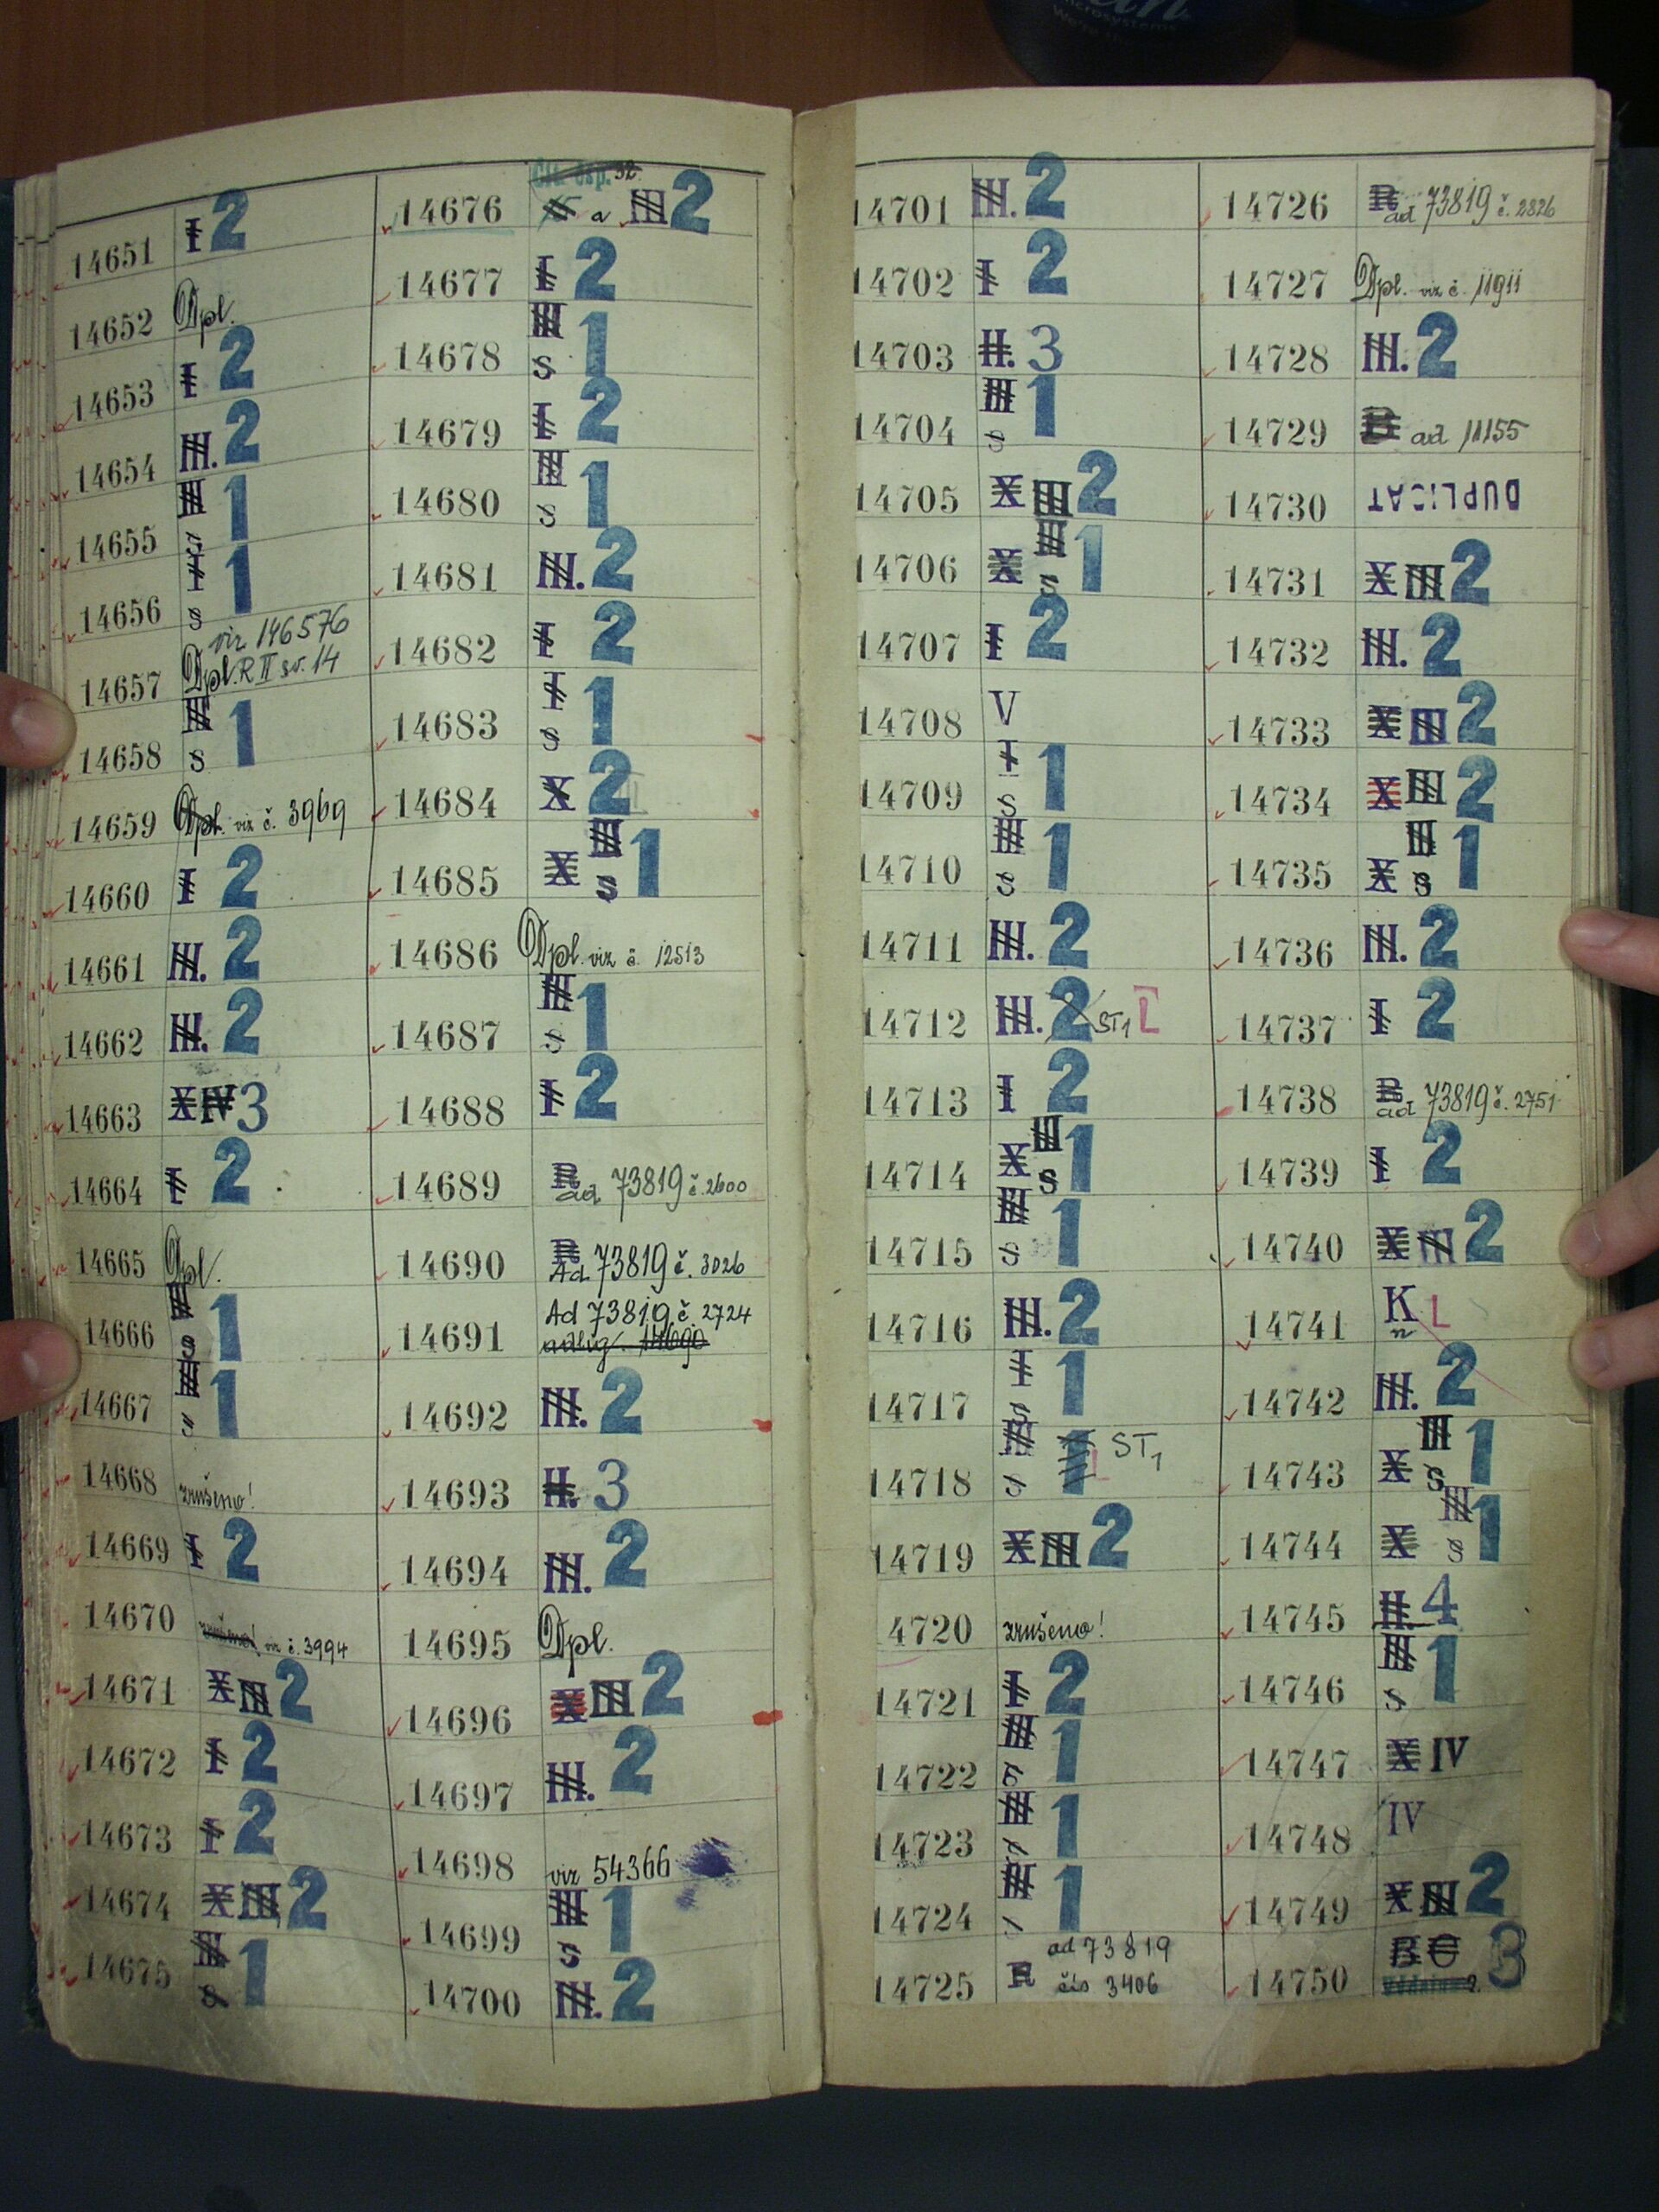 14651 I 2
14652 Dpl.
14653 I 2
14654 III. 2
14655 III s 1
14656 I s 1
14657 viz 146576
Dpl. R II sv. 14
14658 III s 1
14659 Dpl. viz č. 3969
14660 I 2
14661 III. 2
14662 III. 2
14663 X IV 3
14664 I 2
14665 Dpl.
14666 III s 1
14667 III s 1
14668 zrušeno!
14669 I 2
14670 zrušeno! viz č. 3994
14671 X III 2
14672 I 2
14673 I 2
14674 X III 2
14675 III s 1
14676 a III 2
14677 I 2
14678 III s 1
14679 I 2
14680 III s 1
14681 III. 2
14682 I 2
14683 I s 1
14684 X 2
14685 X III s 1
14686 Dpl. viz č. 12513
14687 III s 1
14688 I 2
14689 R ad 73819 č. 2600
14690 R Ad 73819 č. 3026
14691 Ad 73819 č. 2724
adlig. 14690
14692 III. 2
14693 II. 3
14694 III. 2
14695 Dpl.
14696 X III 2
14697 III. 2
14698 viz 54366
14699 III s 1
14700 III. 2
14701 III. 2
14702 I 2
14703 II. 3
14704 III s 1
14705 X III 2
14706 X III s 1
14707 I 2
14708 V
14709 I s 1
14710 III s 1
14711 III. 2
14712 III. 2 ST1 L
14713 I 2
14714 X III s 1
14715 III s 1
14716 III. 2
14717 I s 1
14718 III s 1 L ST1
14719 X III 2
4720 zrušeno!
14721 I 2
14722 III s 1
14723 III s 1
14724 III s 1
14725 R ad 73819
čís 3406
14726 R ad 73819 č. 2826
14727 Dpl. viz č. 11911
14728 III. 2
14729 ad 11155
14730 DUPLICAT
14731 X III 2
14732 III. 2
14733 X III 2
14734 X III 2
14735 X III s 1
14736 III. 2
14737 I 2
14738 R ad 73819 č. 2751
14739 I 2
14740 X III 2
14741 K n L
14742 III. 2
14743 X III s 1
14744 X III s 1
14745 II. 4
14746 III s 1
14747 X IV
14748 IV
14749 X III 2
14750 3